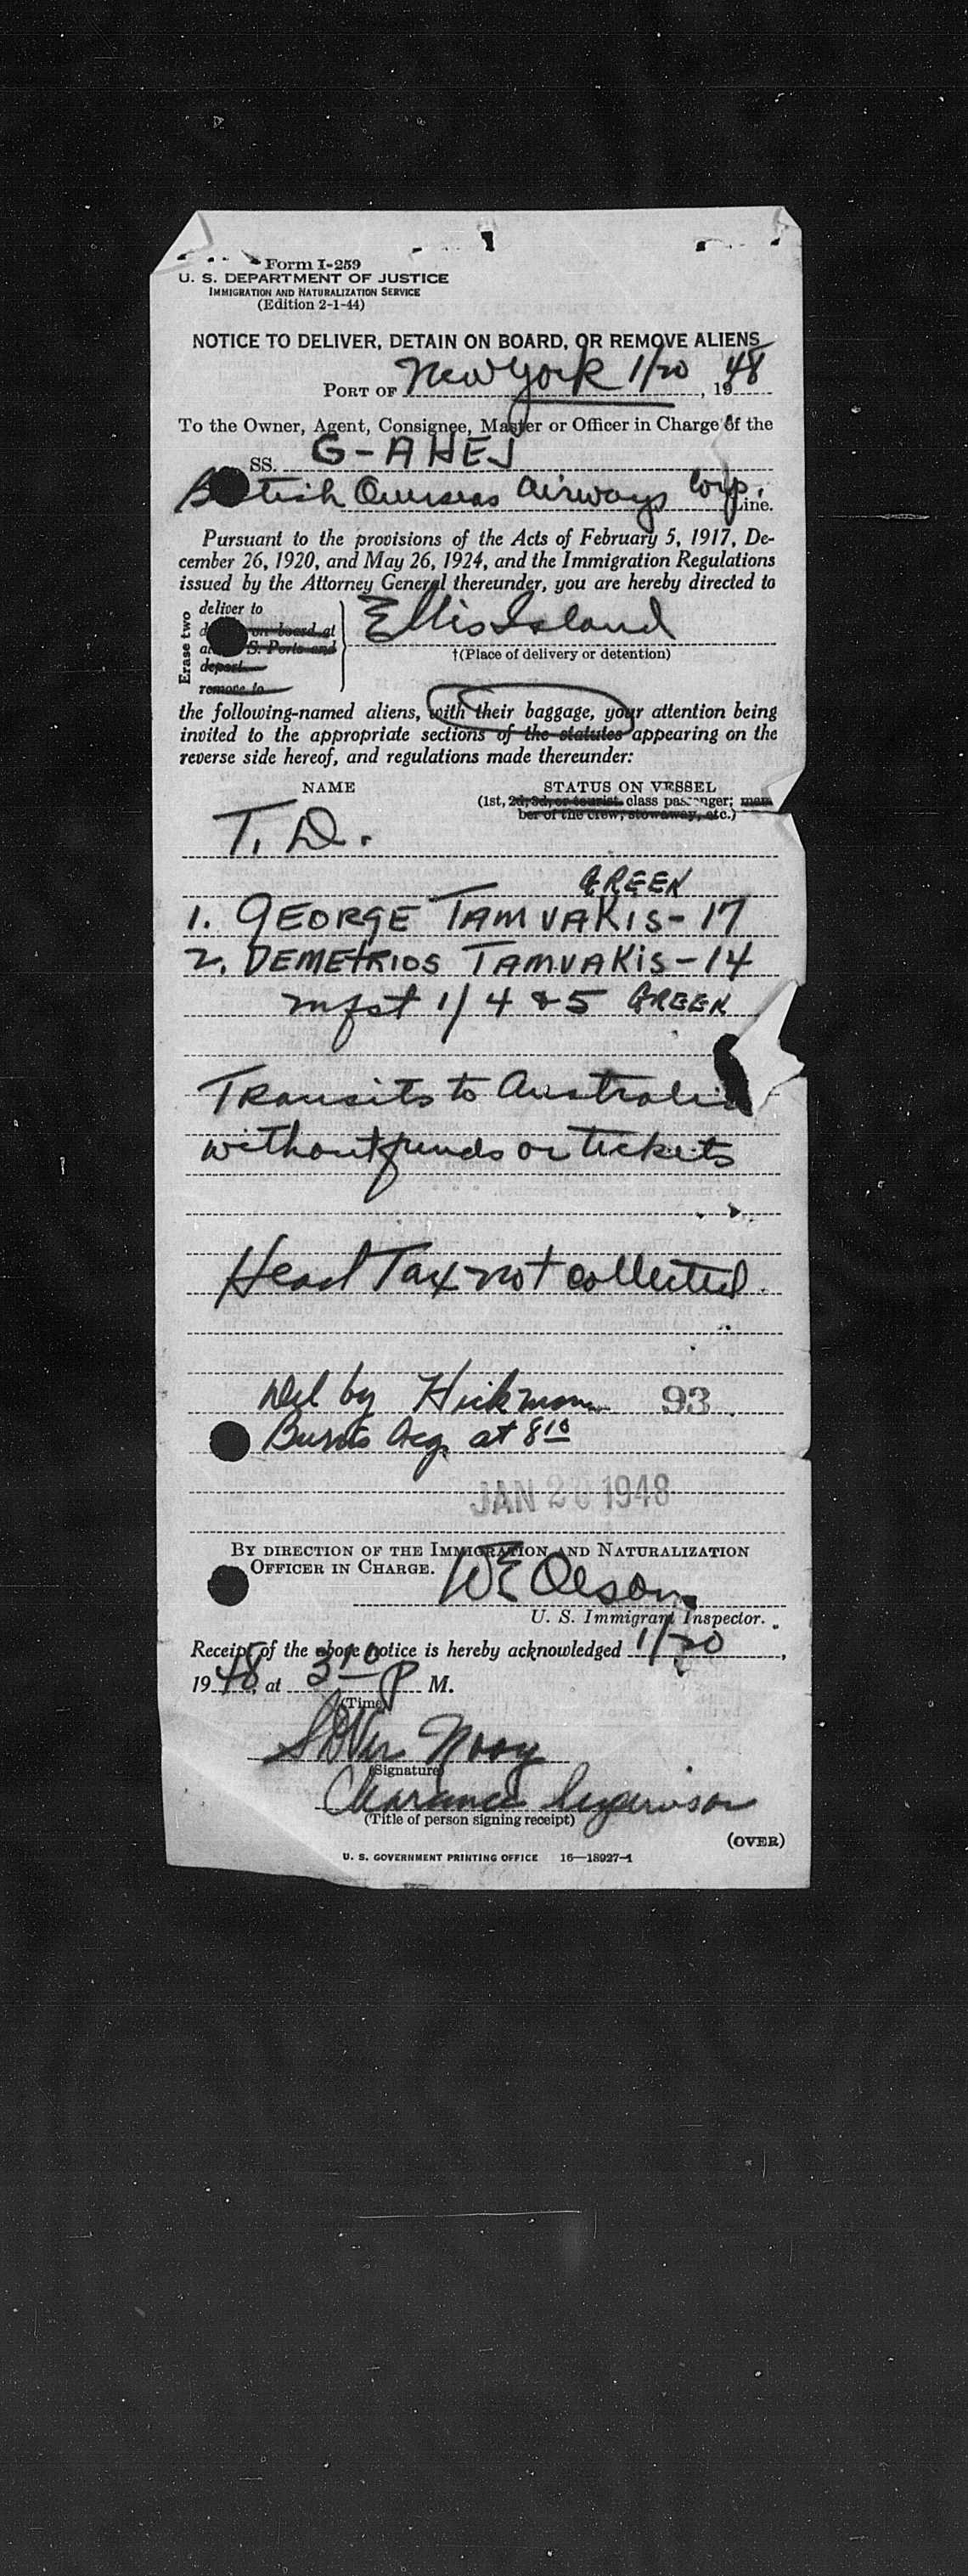 Form I-259
U. S. DEPARTMENT OF JUSTICE
IMMIGRATION AND NATURALIZATION SERVICE
(Edition 2-1-44)
NOTICE TO DELIVER, DETAIN ON BOARD, OR REMOVE ALIENS
PORT OF New York 1/20, 1948
To the Owner, Agent, Consignee, Master or Officer in Charge of the
SS. G-AHEJ
British Overseas Airways Corp. Line.
Pursuant to the provisions of the Acts of February 5, 1917, De-
cember 26, 1920, and May 26, 1924, and the Immigration Regulations
issued by the Attorney General thereunder, you are hereby directed to
Erase two
deliver to
on board at
S. Ports and
depart
remove to
Ellis Island
†(Place of delivery or detention)
the following-named aliens, with their baggage, your attention being
invited to the appropriate sections of the statutes appearing on the
reverse side hereof, and regulations made thereunder:
NAME STATUS ON VESSEL
(1st, 2d, 3d, or tourist class passenger; mem
ber of the crew, stowaway, etc.)
T. D.
GREEK
1. GEORGE TAMVAKIS - 17
2. DEMETRIOS TAMVAKIS - 14
mfst 1/4 & 5 GREEK
Transits to Australia
without funds or tickets
Head Tax not collected.
Del by Hickman 93
Burns Acg. at 8 10
JAN 20 1948
BY DIRECTION OF THE IMMIGRATION AND NATURALIZATION
OFFICER IN CHARGE. WE Olson
U. S. Immigrant Inspector.
Receipt of the above notice is hereby acknowledged 1/20,
1948, at 3 10 P M.
(Time)
(Signature)
Clarance Supervisor
(Title of person signing receipt)
(OVER)
U. S. GOVERNMENT PRINTING OFFICE 16—18927-1